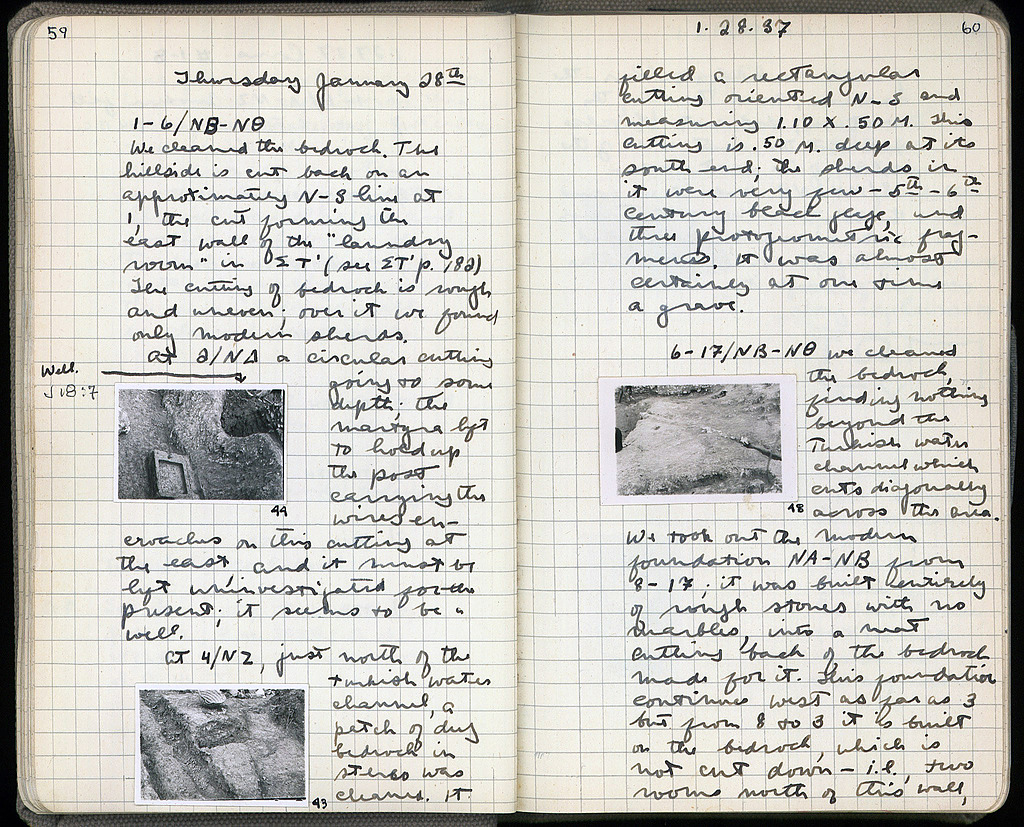 59
Thursday January 28th
1-6/NB-NΘ
We cleaned the bedrock. The
hillside is cut back on an
approximately N-S line at
1, the cut forming the
east wall of the "laundry
room" in ΣΤ' (see ΣΤ' p. 182)
The cutting of bedrock is rough
and uneven; over it we found
only modern sherds.
At 2/NA a circular cutting
Well.
J18:7
going to some
depth; the
martyra left
to hold up
the post
carrying the
wires en-
44
croaches on this cutting at
the east and it must be
left uninvestigated for the
present; it seems to be a
well.
At 4/NZ, just north of the
turkish water
channel, a
patch of dug
bedrock in
stereo was
cleaned. It
43
1.28.37
60
filled a rectangular
cutting oriented N-S and
measuring 1.10 X .50 M. This
cutting is .50 M. deep at its
south end; the sherds in
it were very few - 5th - 6th
century black glaze, and
three protogeometric frag-
ments. It was almost
certainly at one time
a grave.
6-17/NB-NΘ we cleaned
the bedrock,
finding nothing
beyond the
Turkish water
channel which
cuts diagonally
across the area.
48
We took out the modern
foundation NA-NB from
8-17; it was built entirely
of rough stones with no
marbles, into a neat
cutting back of the bedrock
made for it. This foundation
continues west as far as 3
but from 8 to 3 it is built
on the bedrock, which is
not cut down - i.e., two
rooms north of this wall,